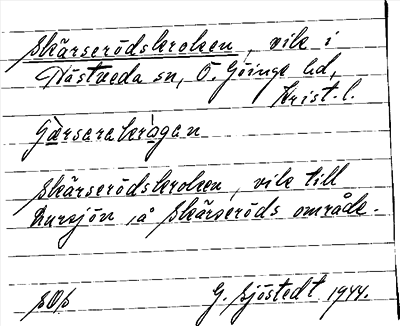 Skärserödskroken, vik i
Nästveda sn, Ö. Göinge hd,
Krist. l.
Skärserödskroken, vik till
Lursjön, å Skärseröds område.
G. Sjöstedt 1944.